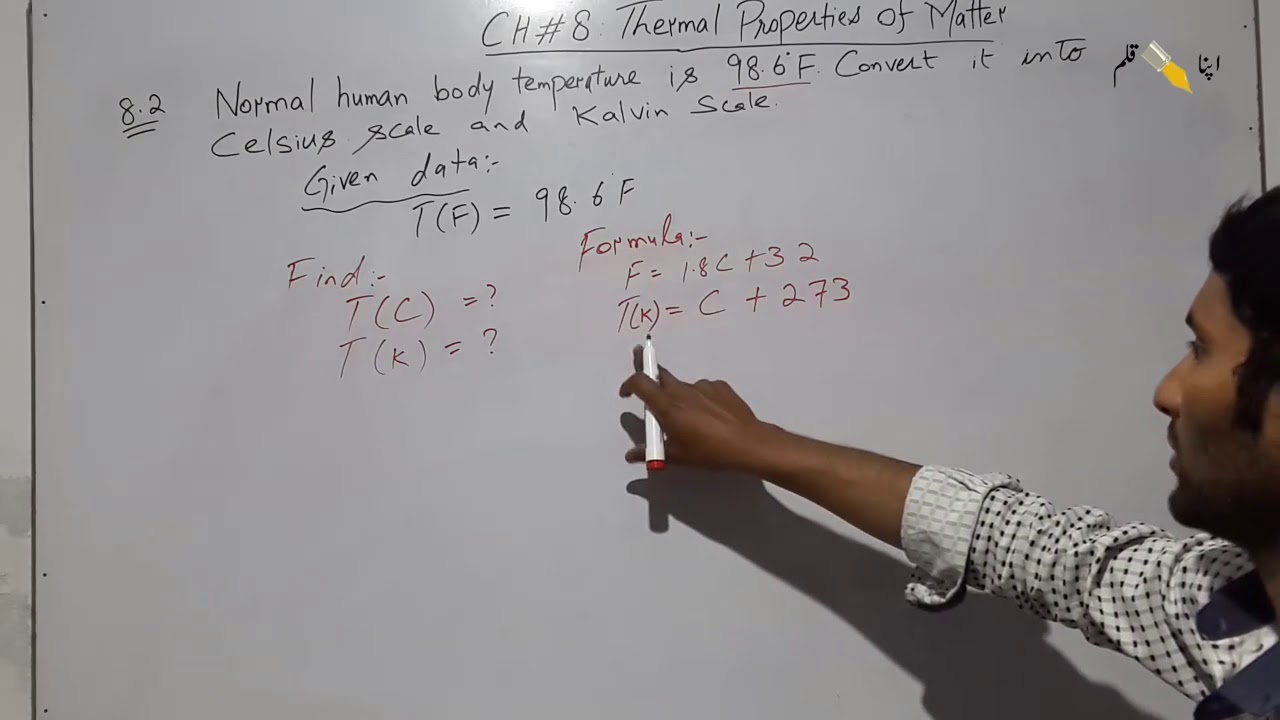 CH#8: Thermal Properties of Matter
8.2 Normal human body temperature is 98.6°F. Convert it into
Celsius scale and Kalvin Scale.
اپنا قلم
Given data:-
T(F) = 98.6°F
Find:-
T(C) = ?
T(K) = ?
Formula:-
F = 1.8C + 32
T(K) = C + 273